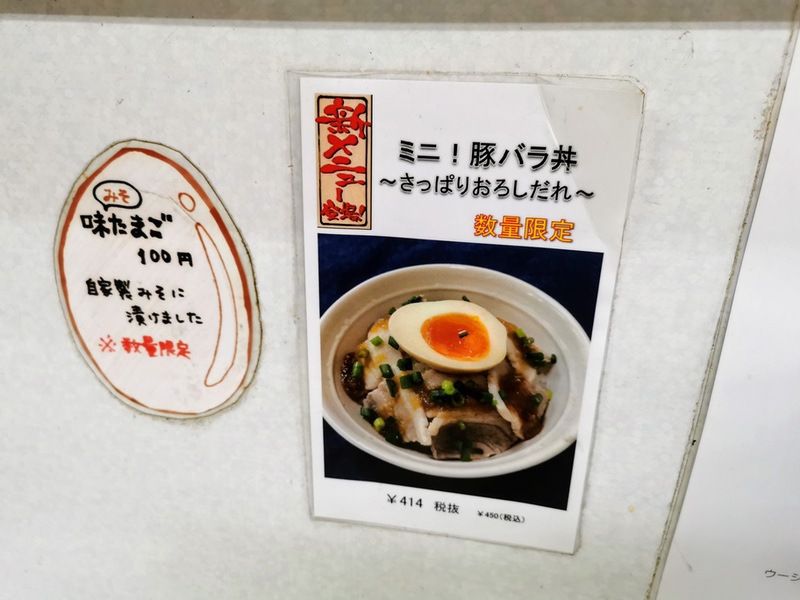 みそ
味たまご
100円
自家製みそに
漬けました
※数量限定
新メニュー
登場!
ミニ！豚バラ丼
～さっぱりおろしだれ～
数量限定
￥414 税抜 ￥450(税込)
ウーシ